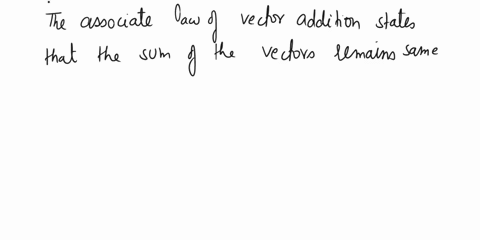 The associate law of vector addition states
that the sum of the vectors remains same